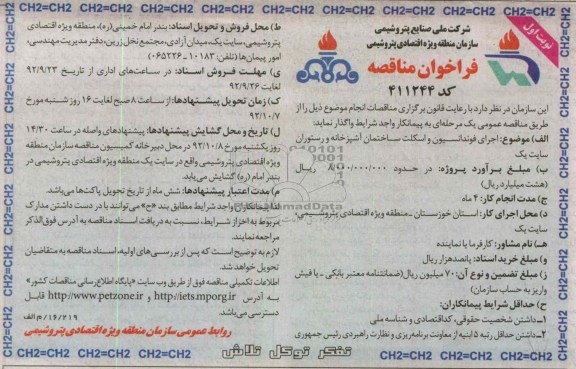 نوبت اول
شرکت ملی صنایع پتروشیمی
سازمان منطقه ویژه اقتصادی پتروشیمی
فراخوان مناقصه
کد ۴۱۱۲۴۴
این سازمان در نظر دارد با رعایت قانون برگزاری مناقصات انجام موضوع ذیل را از
طریق مناقصه عمومی یک مرحله‌ای به پیمانکار واجد شرایط واگذار نماید:
الف) موضوع: اجرای فونداسیون و اسکلت ساختمان آشپزخانه و رستوران
سایت یک
ب) مبلغ برآورد پروژه: در حدود ۸/۰۰۰/۰۰۰/۰۰۰ ریال
(هشت میلیارد ریال)
ج) مدت انجام کار: ۴ ماه
د) محل اجرای کار: استان خوزستان ـ منطقه ویژه اقتصادی پتروشیمی،
سایت یک
هـ) نام مشاور: کارفرما یا نماینده
و) مبلغ خرید اسناد: پانصدهزار ریال
ز) مبلغ تضمین و نوع آن: ۷۰ میلیون ریال (ضمانتنامه معتبر بانکی ـ یا فیش
واریز به حساب سازمان)
ح) حداقل شرایط پیمانکاران:
۱ـ داشتن شخصیت حقوقی، کد اقتصادی و شناسه ملی
۲ـ داشتن حداقل رتبه ۵ ابنیه از معاونت برنامه‌ریزی و نظارت راهبردی رئیس جمهوری
ط) محل فروش و تحویل اسناد: بندر امام خمینی (ره)، منطقه ویژه اقتصادی
پتروشیمی، سایت یک، میدان آزادی، مجتمع نخل زرین، دفتر مدیریت مهندسی،
امور پیمان‌ها (تلفن: ۱۰۱۸۳ - ۰۶۵۲۲۶)
ی) مهلت فروش اسناد: در ساعت‌های اداری از تاریخ ۹۲/۹/۲۳
لغایت ۹۲/۹/۲۶
ک) زمان تحویل پیشنهادها: از ساعت ۸ صبح لغایت ۱۶ روز شنبه مورخ
۹۲/۱۰/۷
ل) تاریخ و محل گشایش پیشنهادها: پیشنهادهای واصله در ساعت ۱۴/۳۰
روز یکشنبه مورخ ۹۲/۱۰/۸ در محل دبیرخانه کمیسیون مناقصه سازمان منطقه
ویژه اقتصادی پتروشیمی واقع در سایت یک منطقه ویژه اقتصادی پتروشیمی در
بندر امام (ره) گشایش می‌یابد.
م) مدت اعتبار پیشنهادها: شش ماه از تاریخ تحویل پاکت‌ها می‌باشد.
لذا پیمانکاران واجد شرایط مطابق بند «ح» می‌توانند با در دست داشتن مدارک
مربوط به احراز شرایط، نسبت به دریافت اسناد مناقصه به آدرس فوق‌الذکر
مراجعه نمایند.
لازم به توضیح است که پس از بررسی‌های اولیه، اسناد مناقصه به متقاضیان
تحویل خواهد شد.
اطلاعات تکمیلی مناقصه فوق از طریق وب سایت «پایگاه اطلاع‌رسانی مناقصات کشور»
به آدرس http://iets.mporg.ir و http://www.petzone.ir قابل
دسترسی می‌باشد.
۱۶/۲۱۹/م الف
روابط عمومی سازمان منطقه ویژه اقتصادی پتروشیمی
تفکر توکل تلاش
CH2=CH2 CH2=CH2 CH2=CH2 CH2=CH2 CH2=CH2 CH2=CH2 CH2=CH2